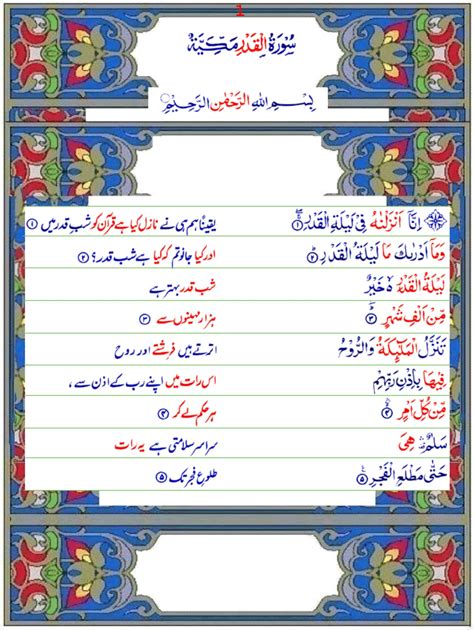 1
سُوْرَةُ الْقَدْرِ مَكِّيَّةٌ
بِسْمِ اللّٰهِ الرَّحْمٰنِ الرَّحِيْمِ
اِنَّاۤ اَنْزَلْنٰهُ فِيْ لَيْلَةِ الْقَدْرِ ۚۖ ۱ یقیناً ہم ہی نے نازل کیا ہے قرآن کو شب قدر میں ۱
وَمَاۤ اَدْرٰىكَ مَا لَيْلَةُ الْقَدْرِ ۲ اور کیا جانو تم کہ کیا ہے شب قدر؟ ۲
لَيْلَةُ الْقَدْرِ ۙ خَيْرٌ شب قدر بہتر ہے
مِّنْ اَلْفِ شَهْرٍ ۳ ہزار مہینوں سے ۳
تَنَزَّلُ الْمَلٰٓئِكَةُ وَالرُّوْحُ اترتے ہیں فرشتے اور روح
فِيْهَا بِاِذْنِ رَبِّهِمْ اس رات میں اپنے رب کے اذن سے ،
مِّنْ كُلِّ اَمْرٍ ۴ ہر حکم لے کر ۴
سَلٰمٌ هِيَ سراسر سلامتی ہے یہ رات
حَتّٰى مَطْلَعِ الْفَجْرِ ۵ طلوع فجر تک ۵